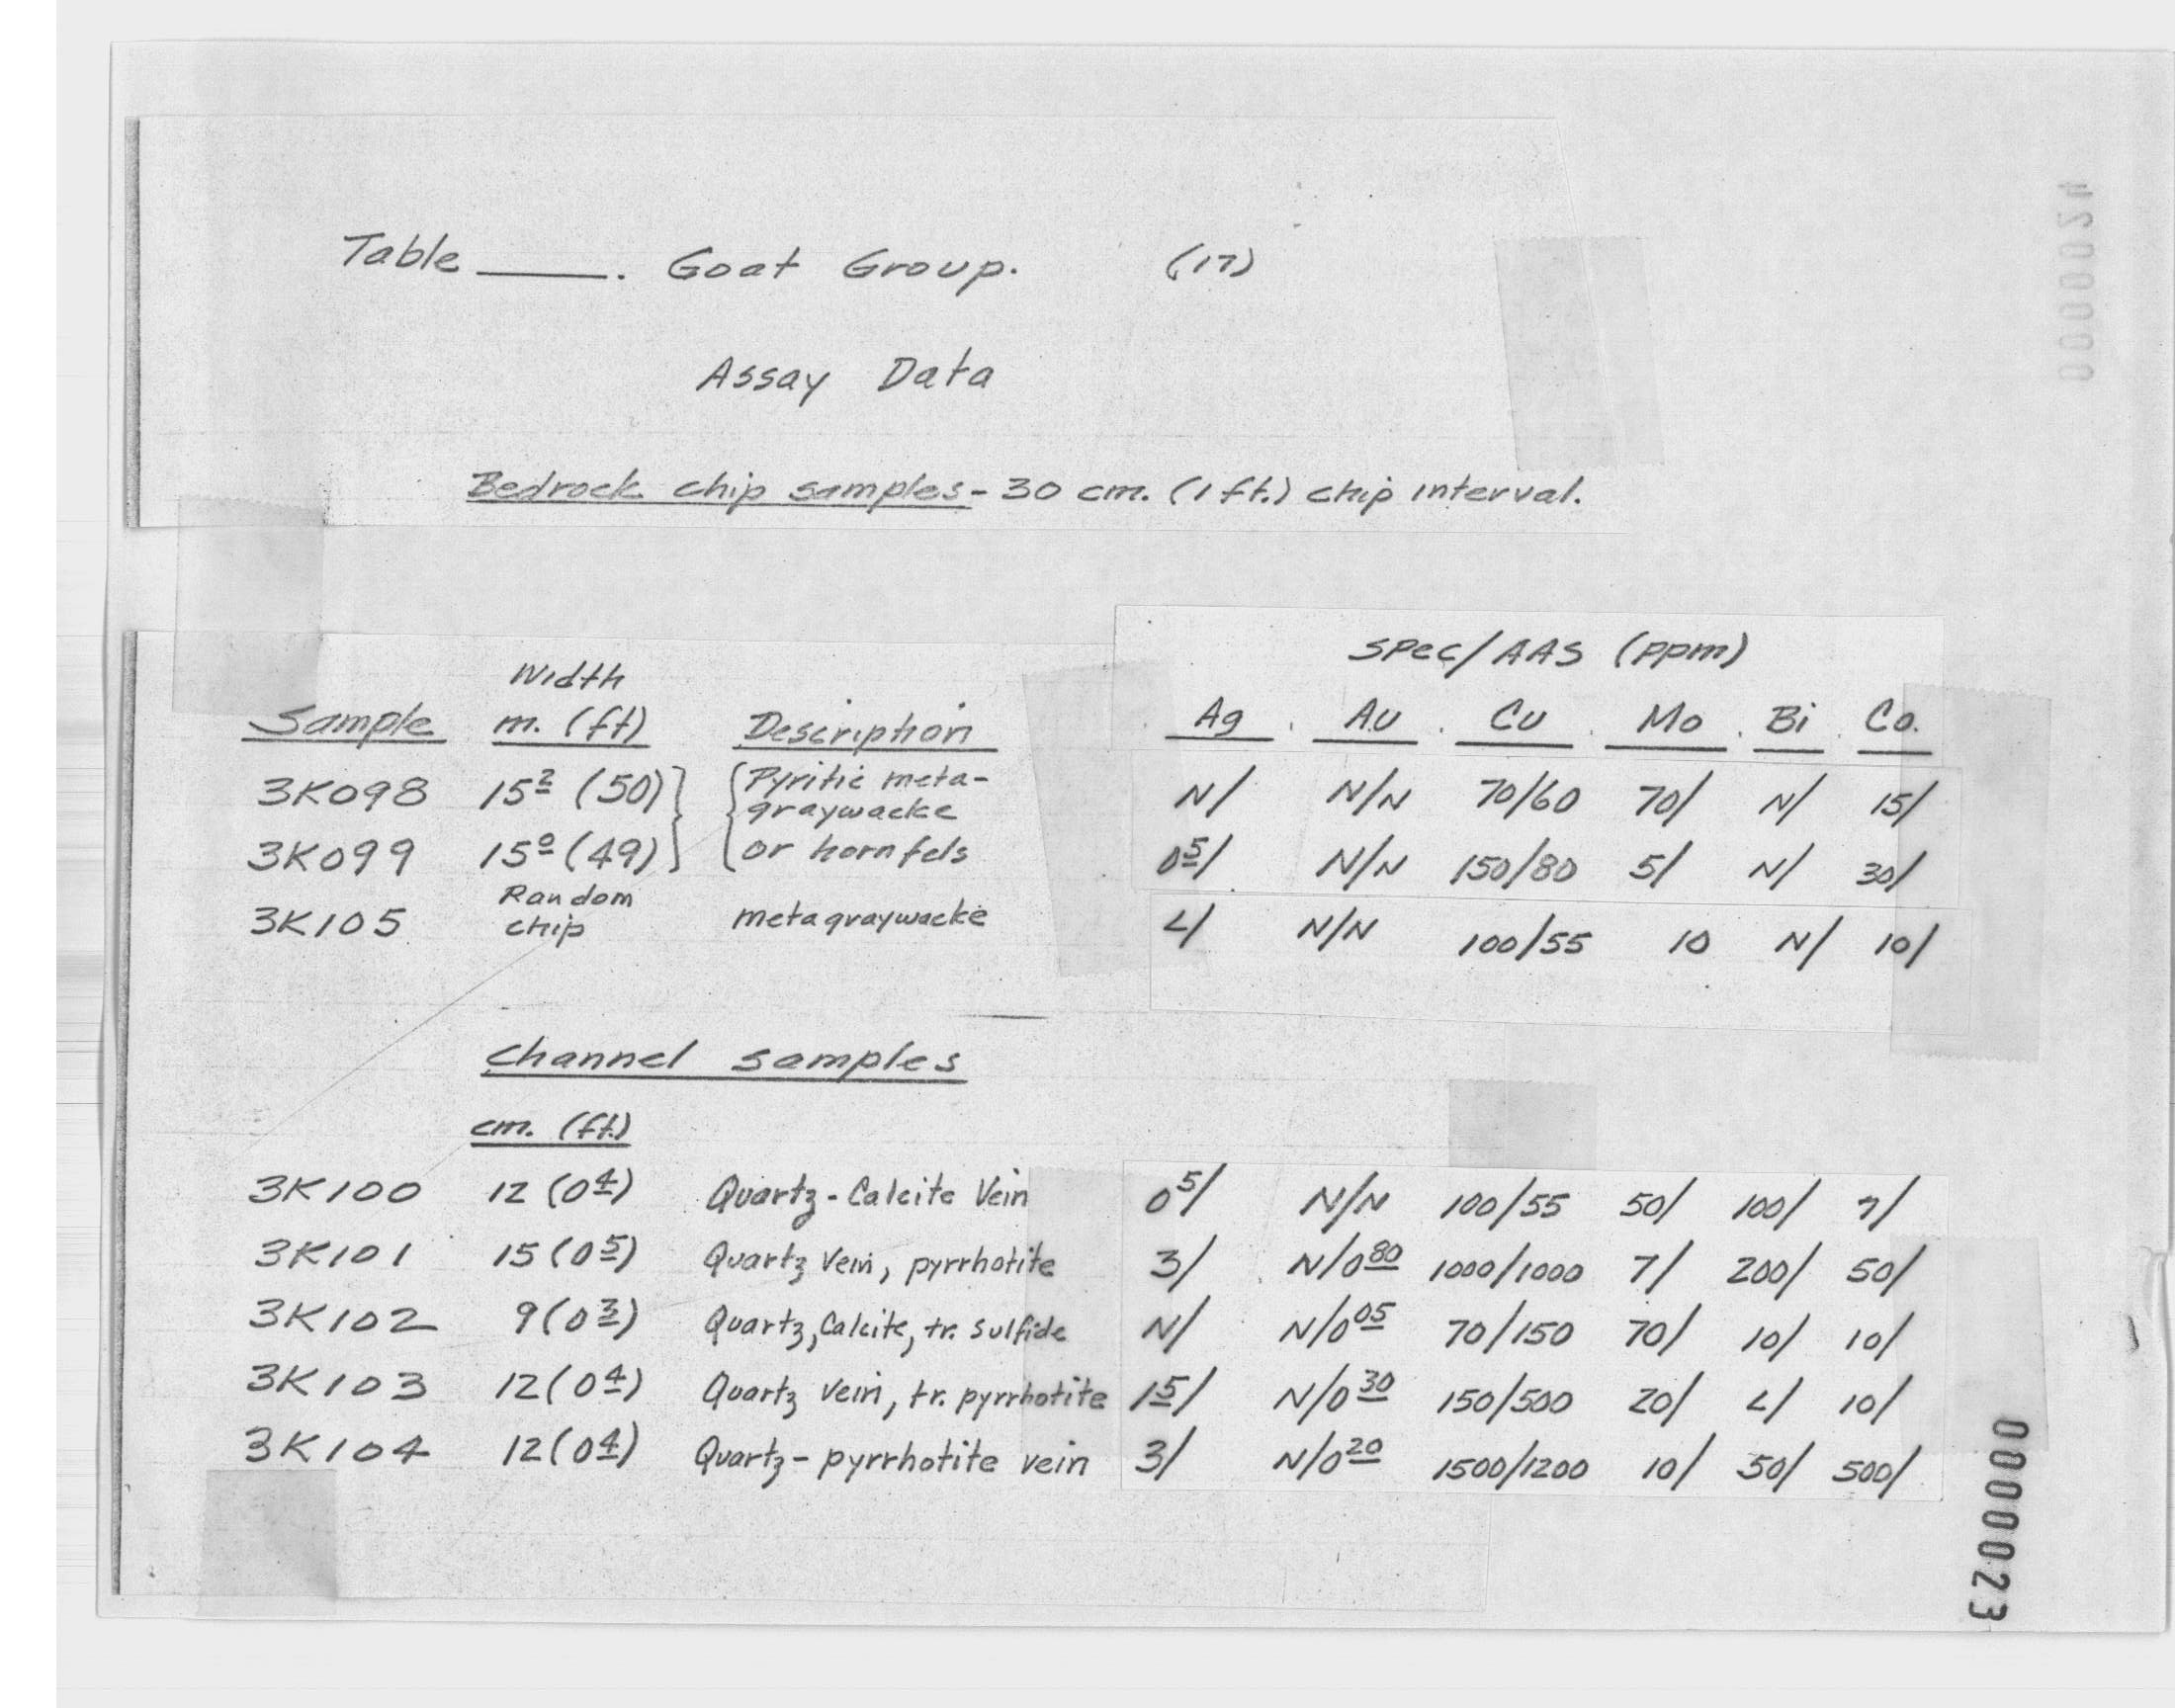 Table ____. Goat Group. (17)
Assay Data
Bedrock chip samples - 30 cm. (1 ft.) chip interval.
SPec/AAS (ppm)
Width
Sample m. (ft) Description Ag. Au. Cu. Mo. Bi. Co.
3K098 15² (50) Pyritic meta- N/ N/N 70/60 70/ N/ 15/
graywacke
3K099 15⁰ (49) or hornfels 0⁵/ N/N 150/80 5/ N/ 30/
Random
3K105 chip metagraywacke L/ N/N 100/55 10 N/ 10/
Channel samples
cm. (ft.)
3K100 12 (0⁴) Quartz - Calcite Vein 0⁵/ N/N 100/55 50/ 100/ 7/
3K101 15 (0⁵) Quartz Vein, pyrrhotite 3/ N/0⁸⁰ 1000/1000 7/ 200/ 50/
3K102 9 (0³) Quartz, Calcite, tr. sulfide N/ N/0⁰⁵ 70/150 70/ 10/ 10/
3K103 12 (0⁴) Quartz Vein, tr. pyrrhotite 1⁵/ N/0³⁰ 150/500 20/ L/ 10/
3K104 12 (0⁴) Quartz - pyrrhotite vein 3/ N/0²⁰ 1500/1200 10/ 50/ 500/
0000023
0000024